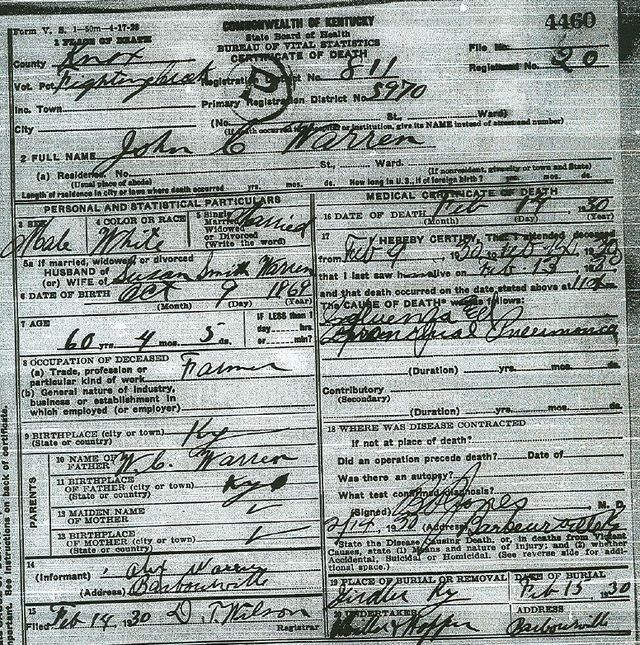 Form V. S. 1-50m-4-17-29
COMMONWEALTH OF KENTUCKY
State Board of Health
BUREAU OF VITAL STATISTICS
CERTIFICATE OF DEATH
4460
1 PLACE OF DEATH
County Knox
File No.
Vot. Pct. Registration District No. 811
Registered No. 20
Inc. Town Primary Registration District No. 5970
City (No. St., Ward)
(If death occurred in hospital or institution, give its NAME instead of street and number)
2 FULL NAME John C Warren
(a) Residence. No. St., Ward.
(Usual place of abode) (If nonresident, give city or town and State)
Length of residence in city or town where death occurred yrs. mos. ds. How long in U.S., if of foreign birth? yrs. mos. ds.
PERSONAL AND STATISTICAL PARTICULARS
3 SEX Male
4 COLOR OR RACE White
5 Single Married Widowed or Divorced (Write the word) Married
5a If married, widowed, or divorced
HUSBAND of
(or) WIFE of Susan Smith Warren
6 DATE OF BIRTH Oct 9 1869
(Month) (Day) (Year)
7 AGE
60 yrs. 4 mos. 5 ds.
IF LESS than 1 day hrs. or min?
8 OCCUPATION OF DECEASED
(a) Trade, profession or particular kind of work Farmer
(b) General nature of industry, business or establishment in which employed (or employer)
9 BIRTHPLACE (city or town) Ky
(State or country)
PARENTS
10 NAME OF FATHER W. C. Warren
11 BIRTHPLACE OF FATHER (city or town) Ky
(State or country)
12 MAIDEN NAME OF MOTHER
13 BIRTHPLACE OF MOTHER (city or town)
(State or country)
14
(Informant) Warren
(Address) Barbourville
15
Filed Feb 14, 1930 D. T. Wilson
Registrar
MEDICAL CERTIFICATE OF DEATH
16 DATE OF DEATH Feb 14 30
(Month) (Day) (Year)
17 I HEREBY CERTIFY, That I attended deceased
from Feb 9 1930
that I last saw h alive on Feb. 13 1930
and that death occurred on the date stated above at
The CAUSE OF DEATH* was as follows:
Influenza
Bronchial Pneumonia
(Duration) yrs. mos. ds.
Contributory
(Secondary)
(Duration) yrs. mos. ds.
18 WHERE WAS DISEASE CONTRACTED
If not at place of death?
Did an operation precede death? Date of
Was there an autopsy?
What test confirmed diagnosis?
(Signed) Jones M. D.
2/14, 1930 (Address) Barbourville Ky
*State the Disease Causing Death, or, in deaths from Violent Causes, state (1) Means and nature of Injury; and (2) whether Accidental, Suicidal or Homicidal. (See reverse side for additional space.)
19 PLACE OF BURIAL OR REMOVAL Girdler Ky
DATE OF BURIAL Feb 15 1930
20 UNDERTAKER Hopper
ADDRESS Barbourville
See instructions on back of certificate.